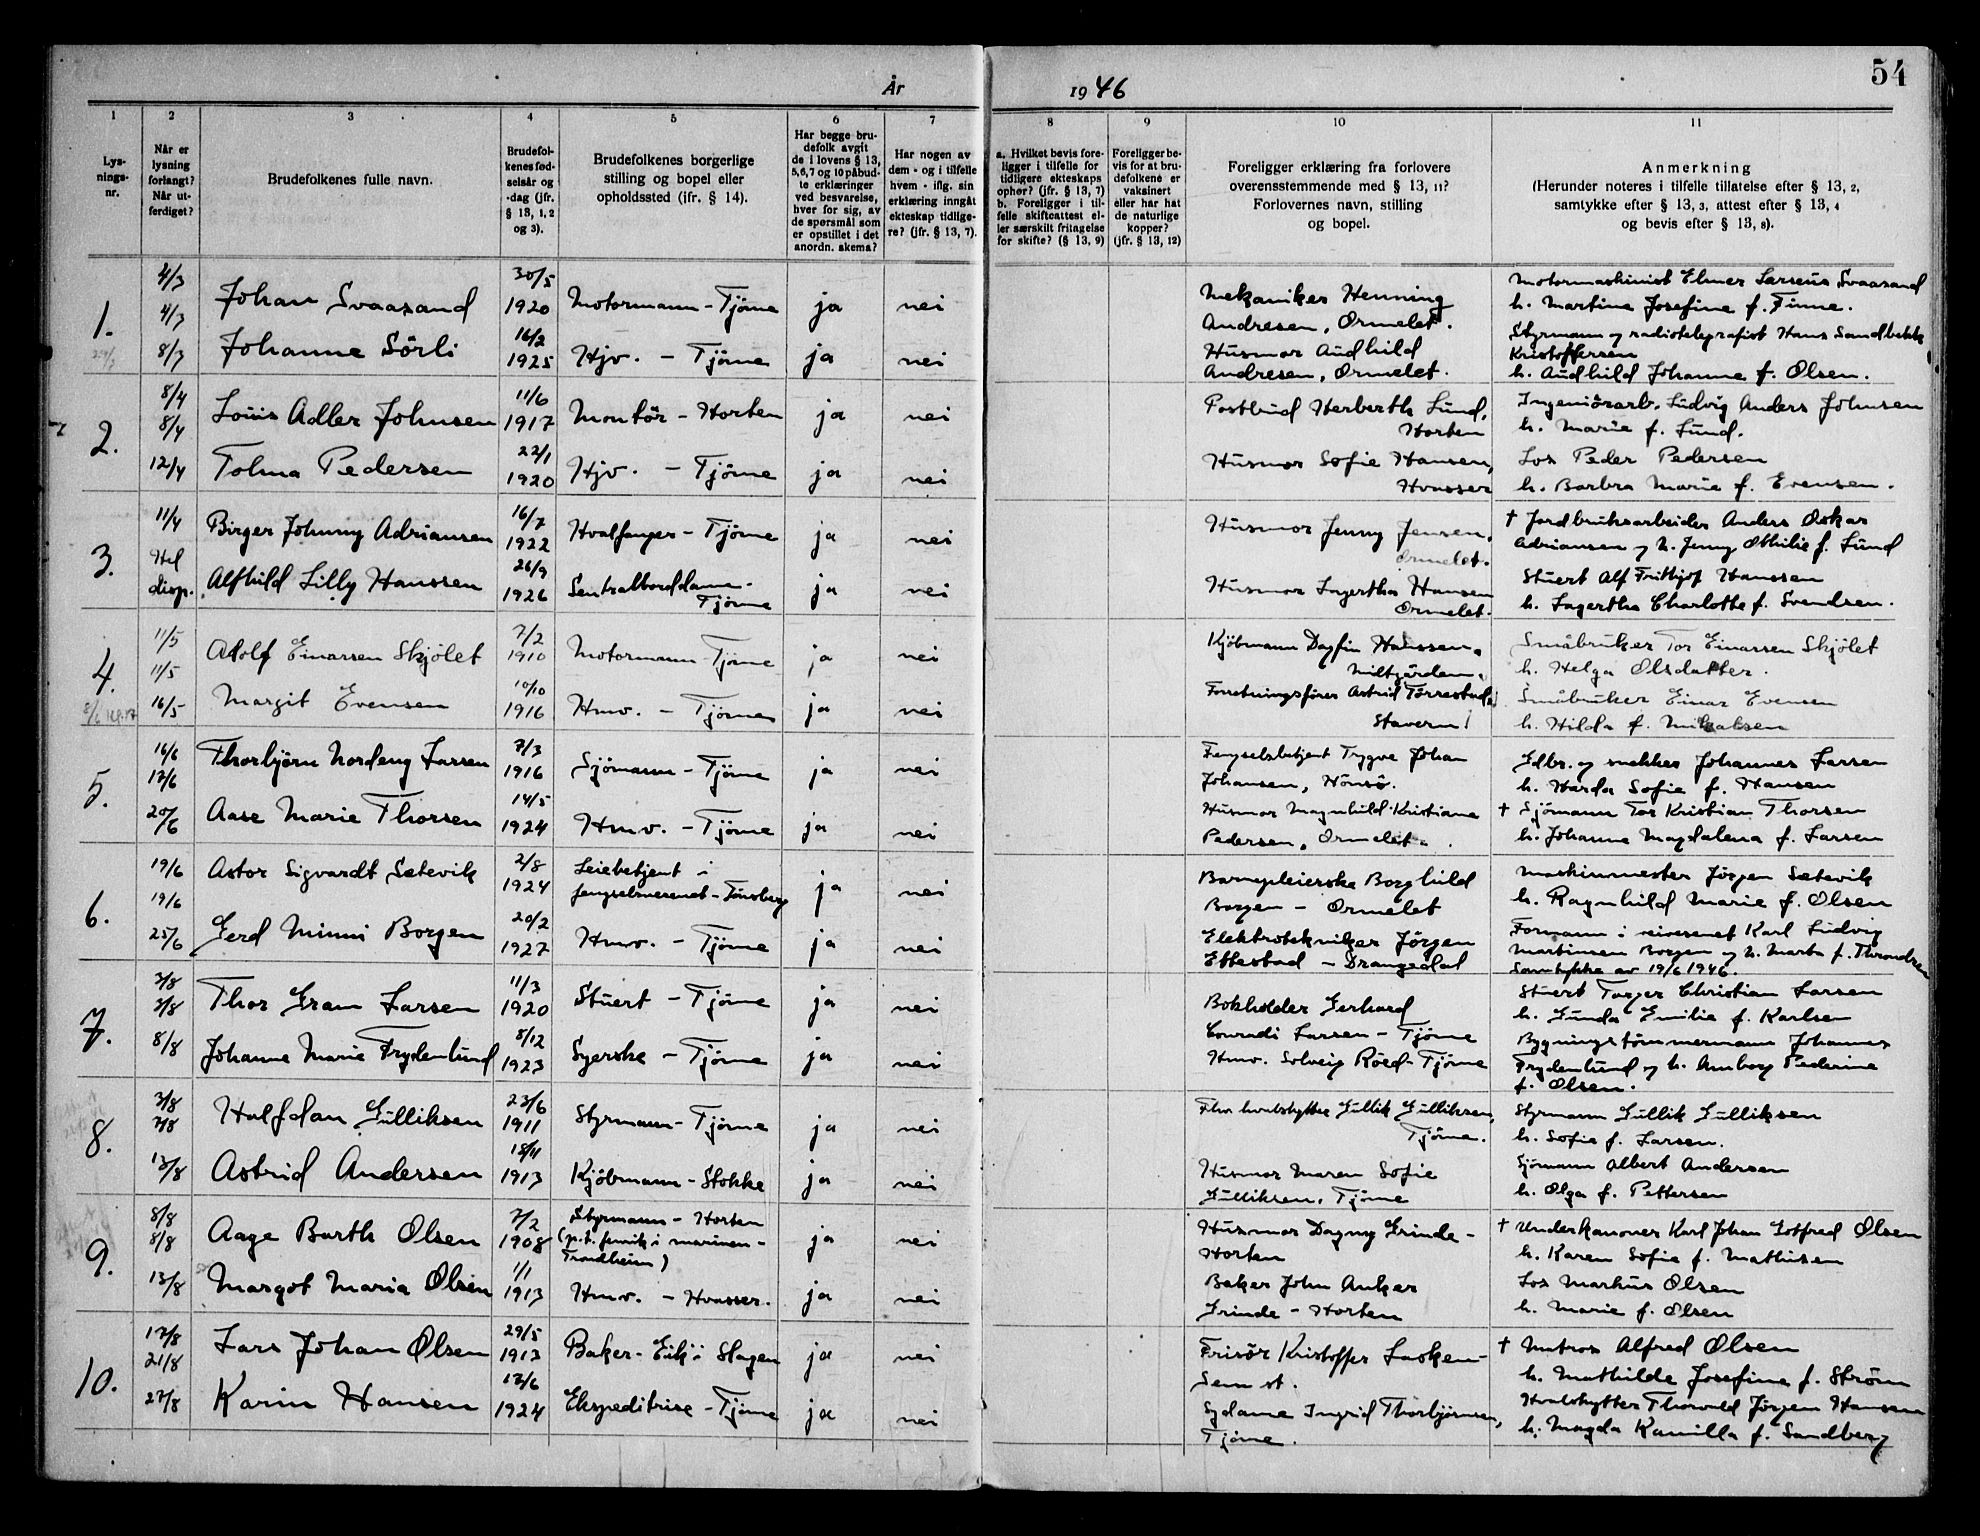 År 1946
54
1 2 3 4 5 6 7 8 9 10 11
Lys-
nings-
nr.
Når er
lysning
forlangt?
Når ut-
ferdiget?
Brudefolkenes fulle navn.
Brudefol-
kenes fød-
selsår og
-dag (jfr.
§ 13, 1, 2
og 3).
Brudefolkenes borgerlige
stilling og bopel eller
opholdssted (jfr. § 14).
Har begge bru-
defolk avgit
de i lovens § 13,
5, 6, 7 og 10 påbud-
te erklæringer
ved besvarelse,
hver for sig, av
de spørsmål som
er opstillet i det
anordn. skema?
Har nogen av
dem - og i tilfelle
hvem - iflg. sin
erklæring inngåt
ekteskap tidlige-
re? (jfr. § 13, 7).
a. Hvilket bevis fore-
ligger i tilfelle for
tidligere ekteskaps
ophør? (jfr. § 13, 7)
b. Foreligger i til-
felle skifteattest el-
ler særskilt fritagelse
for skifte? (§ 13, 9)
Foreligger be-
vis for at bru-
defolkene er
vaksinert
eller har hat
de naturlige
kopper?
(jfr. § 13, 12)
Foreligger erklæring fra forlovere
overensstemmende med § 13, 11?
Forlovernes navn, stilling
og bopel.
Anmerkning
(Herunder noteres i tilfelle tillatelse efter § 13, 2,
samtykke efter § 13, 3, attest efter § 13, 4
og bevis efter § 13, 8).
1.
4/3
4/3
8/3
Johan Svaasand
30/5
1920
Motormann - Tjöme
ja
nei
Mekaniker Henning
Andresen, Ormelet.
Motormaskinist Elmer Larseus Svaasand
h. Martine Josefine f. Finne.
Johanne Sörli
16/2
1925
Hjv. - Tjöme
ja
nei
Husmor Audhild
Andresen, Ormelet.
Styrmann og radiotelegrafist Hans Sandbekk
Kristoffersen
h. Audhild Johanne f. Olsen.
2.
8/4
8/4
12/4
Louis Adler Johnsen
11/6
1917
Montör - Horten
ja
nei
Postbud Herberth Lund,
Horten
Ingeniörarb. Ludvig Anders Johnsen
h. Marie f. Lund.
Tolma Pedersen
22/1
1920
Hjv. - Tjöme
ja
nei
Husmor Sofie Hansen,
Hvasser
Los Peder Pedersen
h. Barbra Marie f. Evensen.
3.
11/4
Hel
disp.
Birger Johnny Adriansen
16/7
1922
Hvalfanger - Tjöme
ja
nei
Husmor Jenny Jensen,
Ormelet.
† Jordbruksarbeider Anders Oskar
Adriansen og h. Jenny Othilie f. Lund
Alfhild Lilly Hanssen
26/9
1926
Sentralborddame -
Tjöme
ja
nei
Husmor Lagertha Hansen
Ormelet.
Stuert Alf Frithjof Hanssen
h. Lagertha Charlotte f. Svendsen.
4.
11/5
11/5
16/5
Adolf Einarsen Skjölet
7/2
1910
Motormann Tjöme
ja
nei
Kjöbmann Dagfin Hanssen,
Midtgården,
Småbruker Tor Einarsen Skjölet
h. Helga Olsdatter.
Margit Evensen
10/10
1916
Hmv. - Tjöme
ja
nei
Forretningsförer Astrid Törrestad,
Stavern!
Småbruker Einar Evensen
h. Hilda f. Mikalsen
5.
16/6
17/6
20/6
Thorbjörn Nordeng Larsen
7/3
1916
Sjömann - Tjöme
ja
nei
Fengselsbetjent Trygve Johan
Johansen, Hönsö.
Gdbr. og snekker Johannes Larsen
h. Harda Sofie f. Hansen
Aase Marie Thorsen
14/5
1924
Hmv. - Tjöme
ja
nei
Husmor Magnhild Kristiane
Pedersen, Ormelet.
† Sjömann Tor Kristian Thorsen
h. Johanne Magdalena f. Larsen
6.
19/6
19/6
25/6
Astor Sigvardt Setevik
2/8
1924
Leiebetjent i
fengselsvesenet - Tönsberg
ja
nei
Barnepleierske Borghild
Borgen - Ormelet
Maskinmester Jörgen Setevik
h. Ragnhild Marie f. Olsen
Gerd Minni Borgen
20/2
1927
Hmv. - Tjöme
ja
nei
Elektrotekniker Jörgen
Ettestad - Drangedal
Formann i veivesenet Karl Ludvig
Martinsen Borgen og h. Marta f. Throndsen
Samtykke av 19/6 1946.
7.
3/8
3/8
8/8
Thor Gram Larsen
11/3
1920
Stuert - Tjöme
ja
nei
Bokholder Gerhard
Conradi Larsen - Tjöme
Stuert Torger Christian Larsen
h. Gunda Emilie f. Karlsen
Johanne Marie Frydenlund
8/12
1923
Syerske - Tjöme
ja
nei
Hmv. Solveig Röed - Tjöme
Bygningstömmermann Johannes
Frydenlund og h. Amborg Pederine
f. Olsen.
8.
3/8
7/8
13/8
Halfdan Gulliksen
23/6
1911
Styrmann - Tjöme
ja
nei
Fhv. hvalskytter Gullik Gulliksen,
Tjöme.
Styrmann Gullik Gulliksen
h. Sofie f. Larsen.
Astrid Andersen
18/11
1913
Kjöbmann - Stokke
ja
nei
Husmor Maren Sofie
Gulliksen, Tjöme
Sjömann Albert Andersen
h. Olga f. Pettersen
9.
8/8
8/8
13/8
Aage Barth Olsen
7/2
1908
Styrmann - Horten
(p.t. fenrik i marinen -
Trondheim)
ja
nei
Husmor Dagny Grinde -
Horten
† Underkanoner Karl Johan Gotfred Olsen
h. Karen Sofie f. Mathisen
Margot Maria Olsen
1/1
1913
Hmv. - Hvasser.
ja
nei
Baker John Anker
Grinde - Horten
Los Markus Olsen
h. Marie f. Olsen
10.
17/8
21/8
27/8
Lars Johan Olsen
29/5
1913
Baker - Eik i Slagen
ja
nei
Frisör Kristoffer Lasken -
Sem st.
† Matros Alfred Olsen
h. Mathilde Josefine f. Ström
Karin Hansen
13/6
1924
Ekspeditrise - Tjöme
ja
nei
Sydame Ingrid Thorbjörnsen,
Tjöme.
Hvalskytter Thorvald Jörgen Hansen
h. Magda Kamilla f. Sandberg